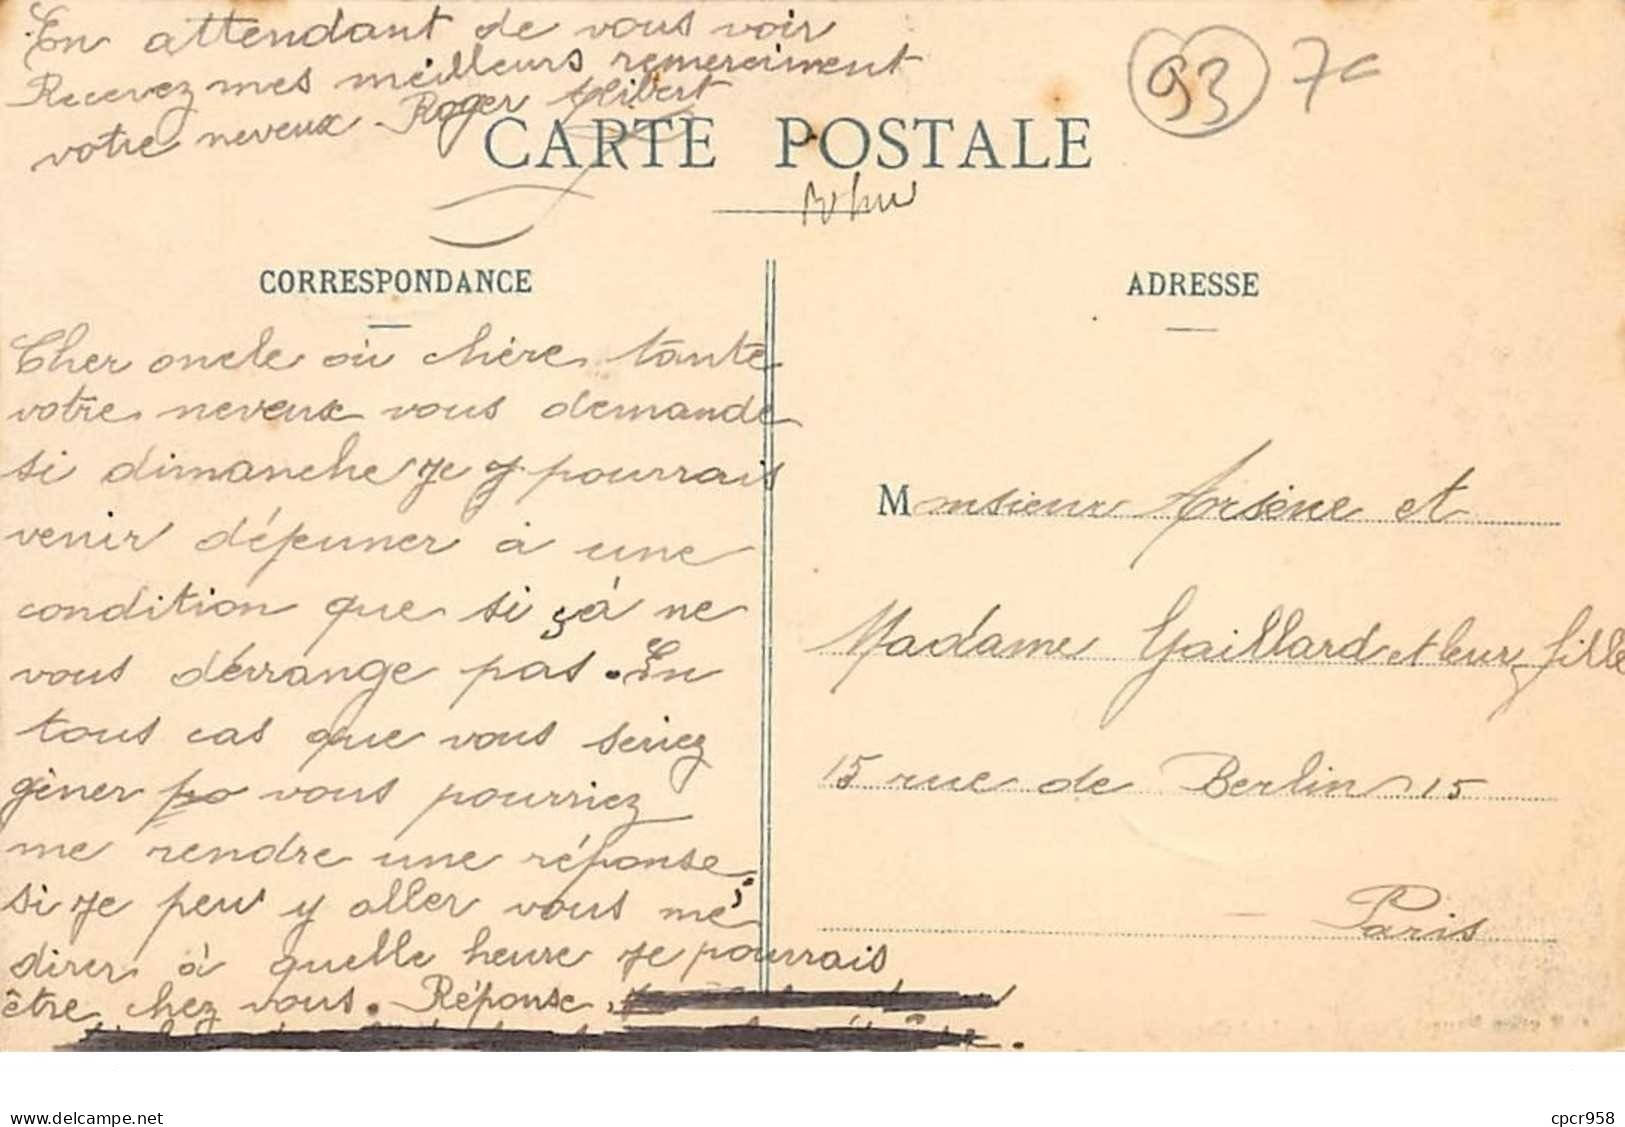 En attendant de vous voir
Recevez mes meilleurs remerciment
votre neveux Roger Alibert
93 7c
CARTE POSTALE
CORRESPONDANCE
ADRESSE
Cher oncle où chère tante
votre neveux vous demande
si dimanche je pourrais
venir déjeuner à une
condition que si çà ne
vous dérrange pas. En
tous cas que vous seriez
gèner vous pourriez
me rendre une réponse,
si je peu y aller vous me
direz à quelle heure je pourrais
être chez vous. Réponse
Monsieur Arsène et
Madame Gaillard et leur fille
15 rue de Berlin 15
Paris
delcampe.net
cpcr958